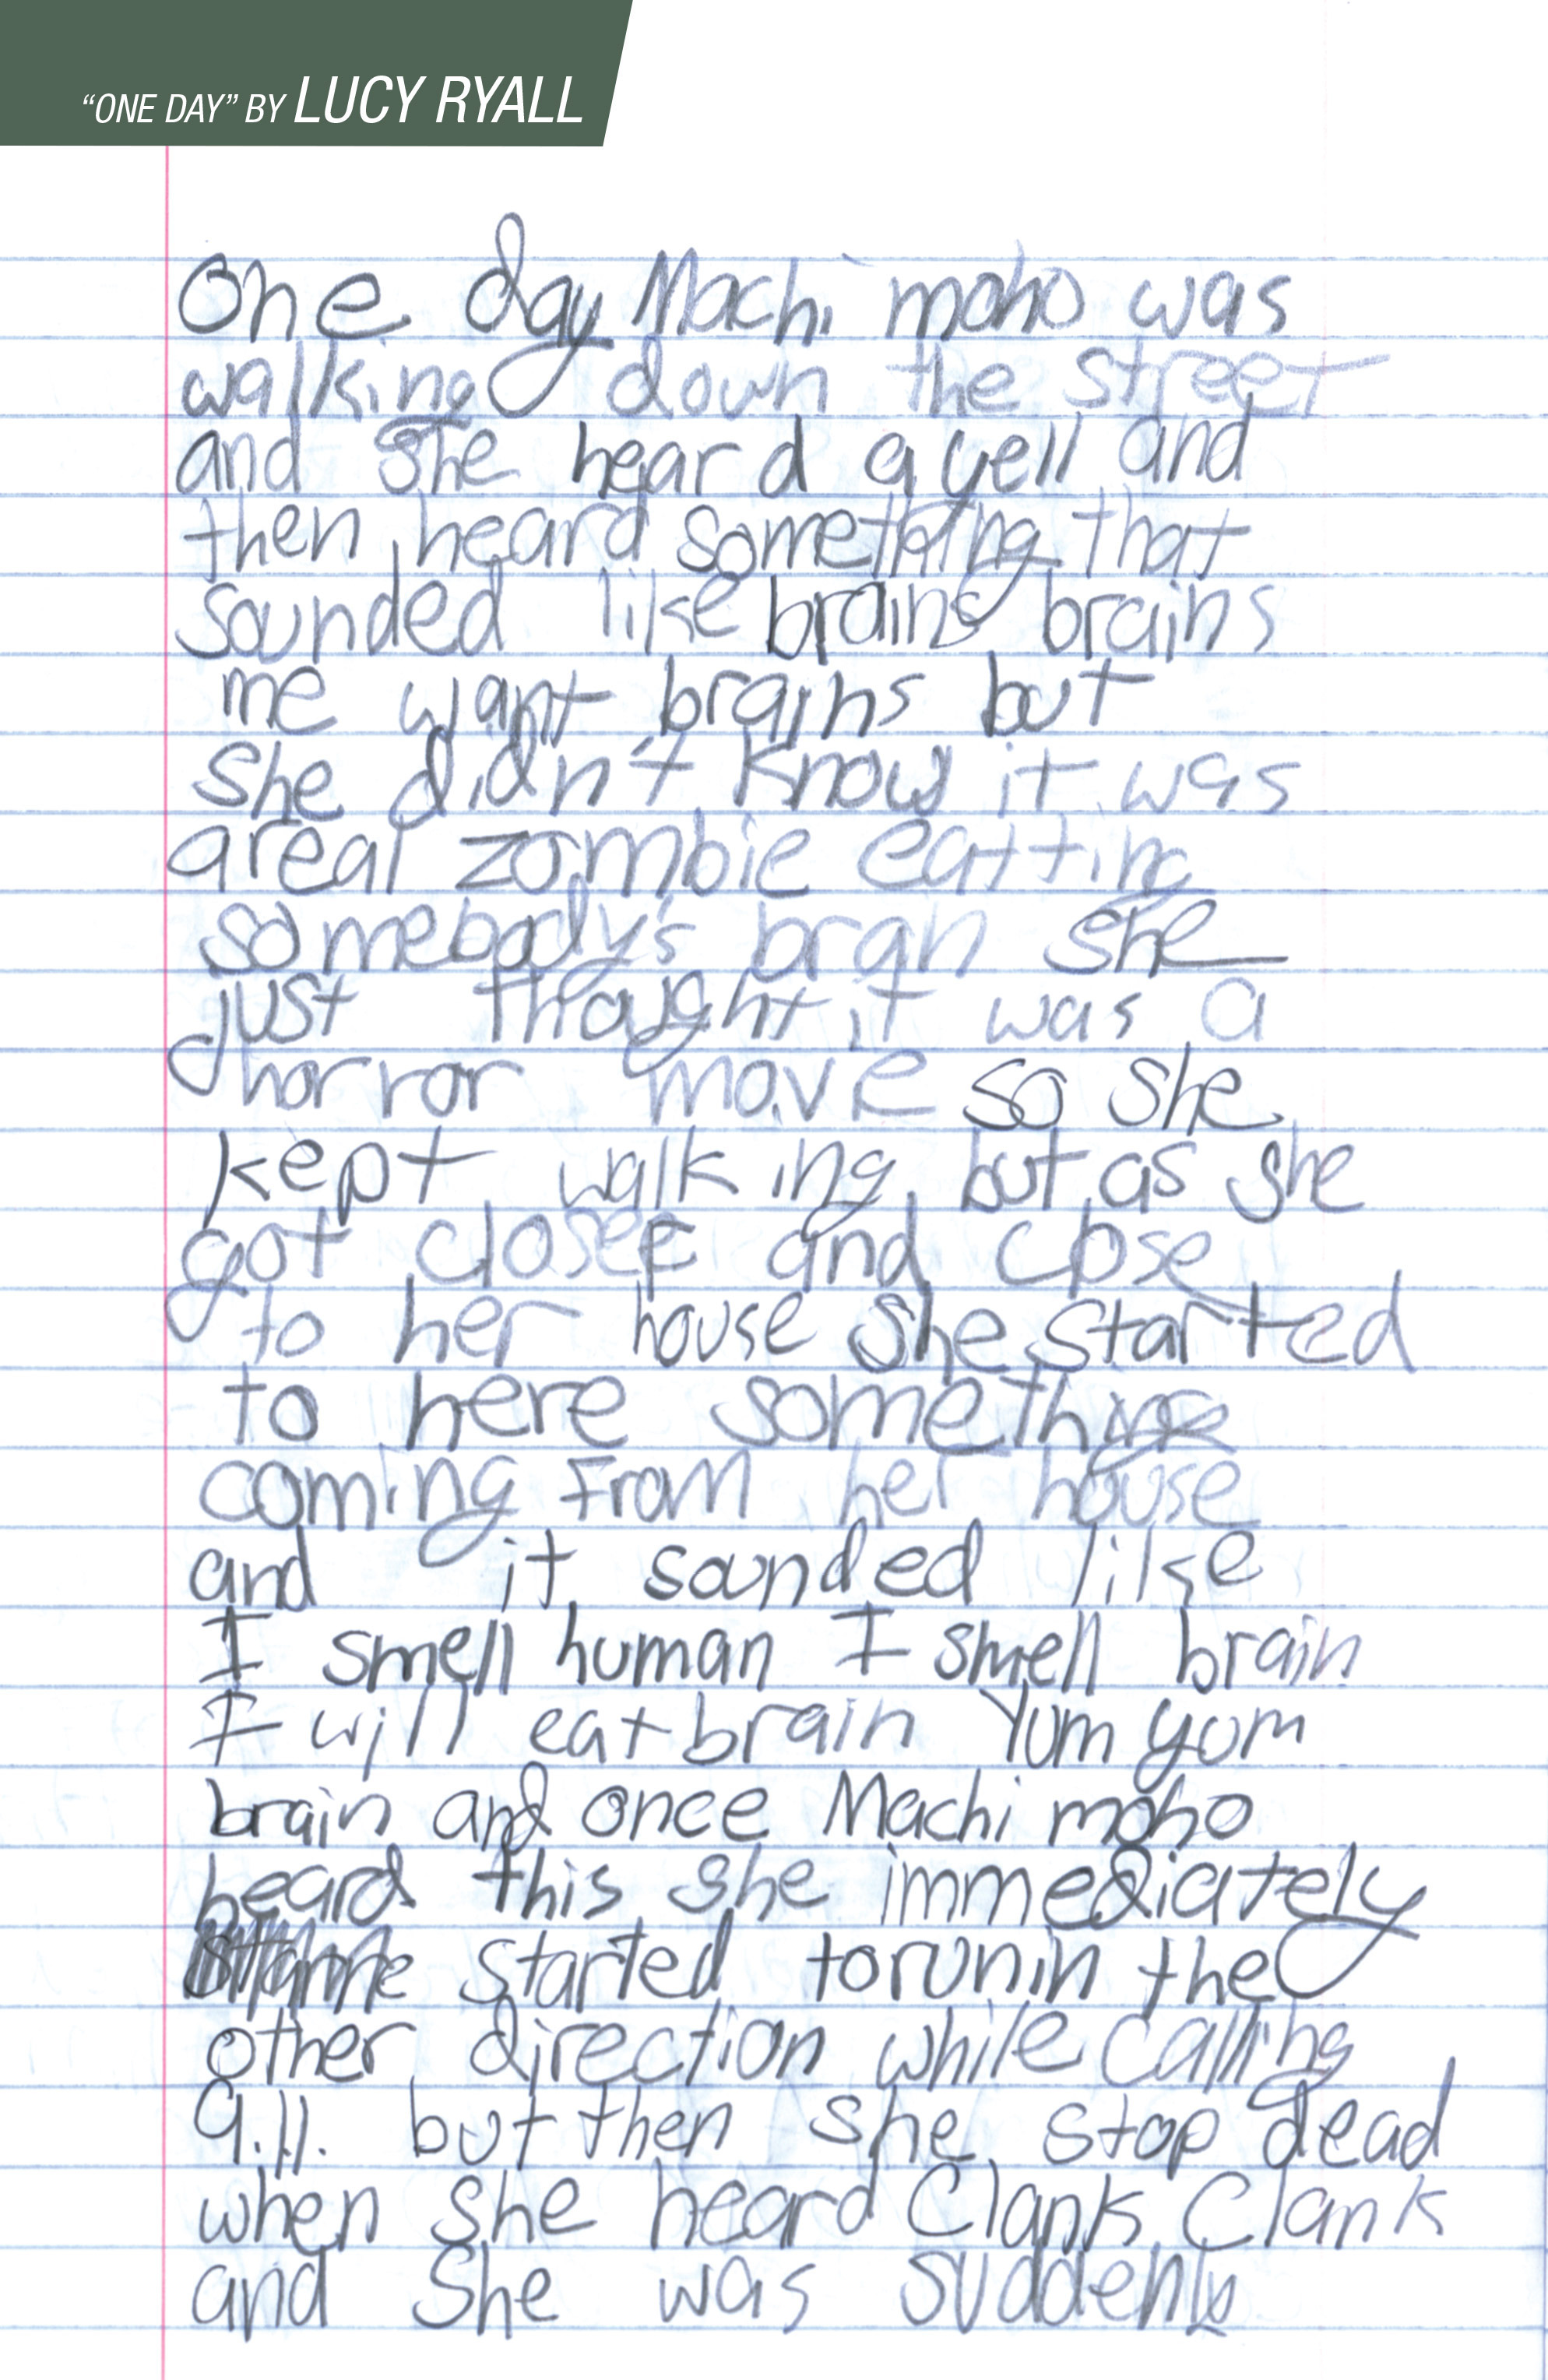 “ONE DAY” BY LUCY RYALL
One day Machi moho was
walking down the street
and she heard a yell and
then heard something that
sounded like brains brains
me want brains but
she didn't know it was
a real zombie eatting
somebody's bran she
just thought it was a
horror movie so she
kept walking but as she
got closer and close
to her house she started
to here something
coming from her house
and it sounded like
I smell human I smell brain
I will eat brain Yum yum
brain and once Machi moho
heard this she immediately
started to run in the
other direction while calling
9.1.1. but then she stop dead
when she heard Clank Clank
and She was suddenly